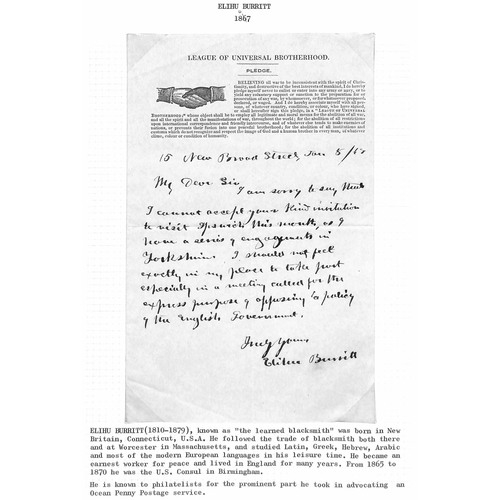 ELIHU BURRITT
1867
LEAGUE OF UNIVERSAL BROTHERHOOD.
PLEDGE.
BELIEVING all war to be inconsistent with the spirit of Chris-
tianity, and destructive of the best interests of mankind, I do hereby
pledge myself never to enlist or enter into any army or navy, or to
yield any voluntary support or sanction to the preparation for or
prosecution of any war, by whomsoever, or for whatsoever proposed,
declared, or waged. And I do hereby associate myself with all per-
sons, of whatever country, condition, or colour, who have signed,
or shall hereafter sign this pledge, in a "LEAGUE OF UNIVERSAL
BROTHERHOOD;" whose object shall be to employ all legitimate and moral means for the abolition of all war,
and all the spirit and all the manifestations of war, throughout the world; for the abolition of all restrictions
upon international correspondence and friendly intercourse, and of whatever else tends to make enemies of
nations, or prevents their fusion into one peaceful brotherhood; for the abolition of all institutions and
customs which do not recognize and respect the image of God and a human brother in every man, of whatever
clime, colour or condition of humanity.
15 New Broad Street, Jan 5/
My Dear Sir
I am sorry to say that
I cannot accept your kind invitation
to visit Ipswich this month, as I
have a series of engagements in
Yorkshire. I should not feel
exactly in my place to take part
especially in a meeting called for the
express purpose of opposing a policy
of the English Government.
Truly Yours
Elihu Burritt
ELIHU BURRITT(1810-1879), known as "the learned blacksmith" was born in New
Britain, Connecticut, U.S.A. He followed the trade of blacksmith both there
and at Worcester in Massachusetts, and studied Latin, Greek, Hebrew, Arabic
and most of the modern European languages in his leisure time. He became an
earnest worker for peace and lived in England for many years. From 1865 to
1870 he was the U.S. Consul in Birmingham.
He is known to philatelists for the prominent part he took in advocating an
Ocean Penny Postage service.